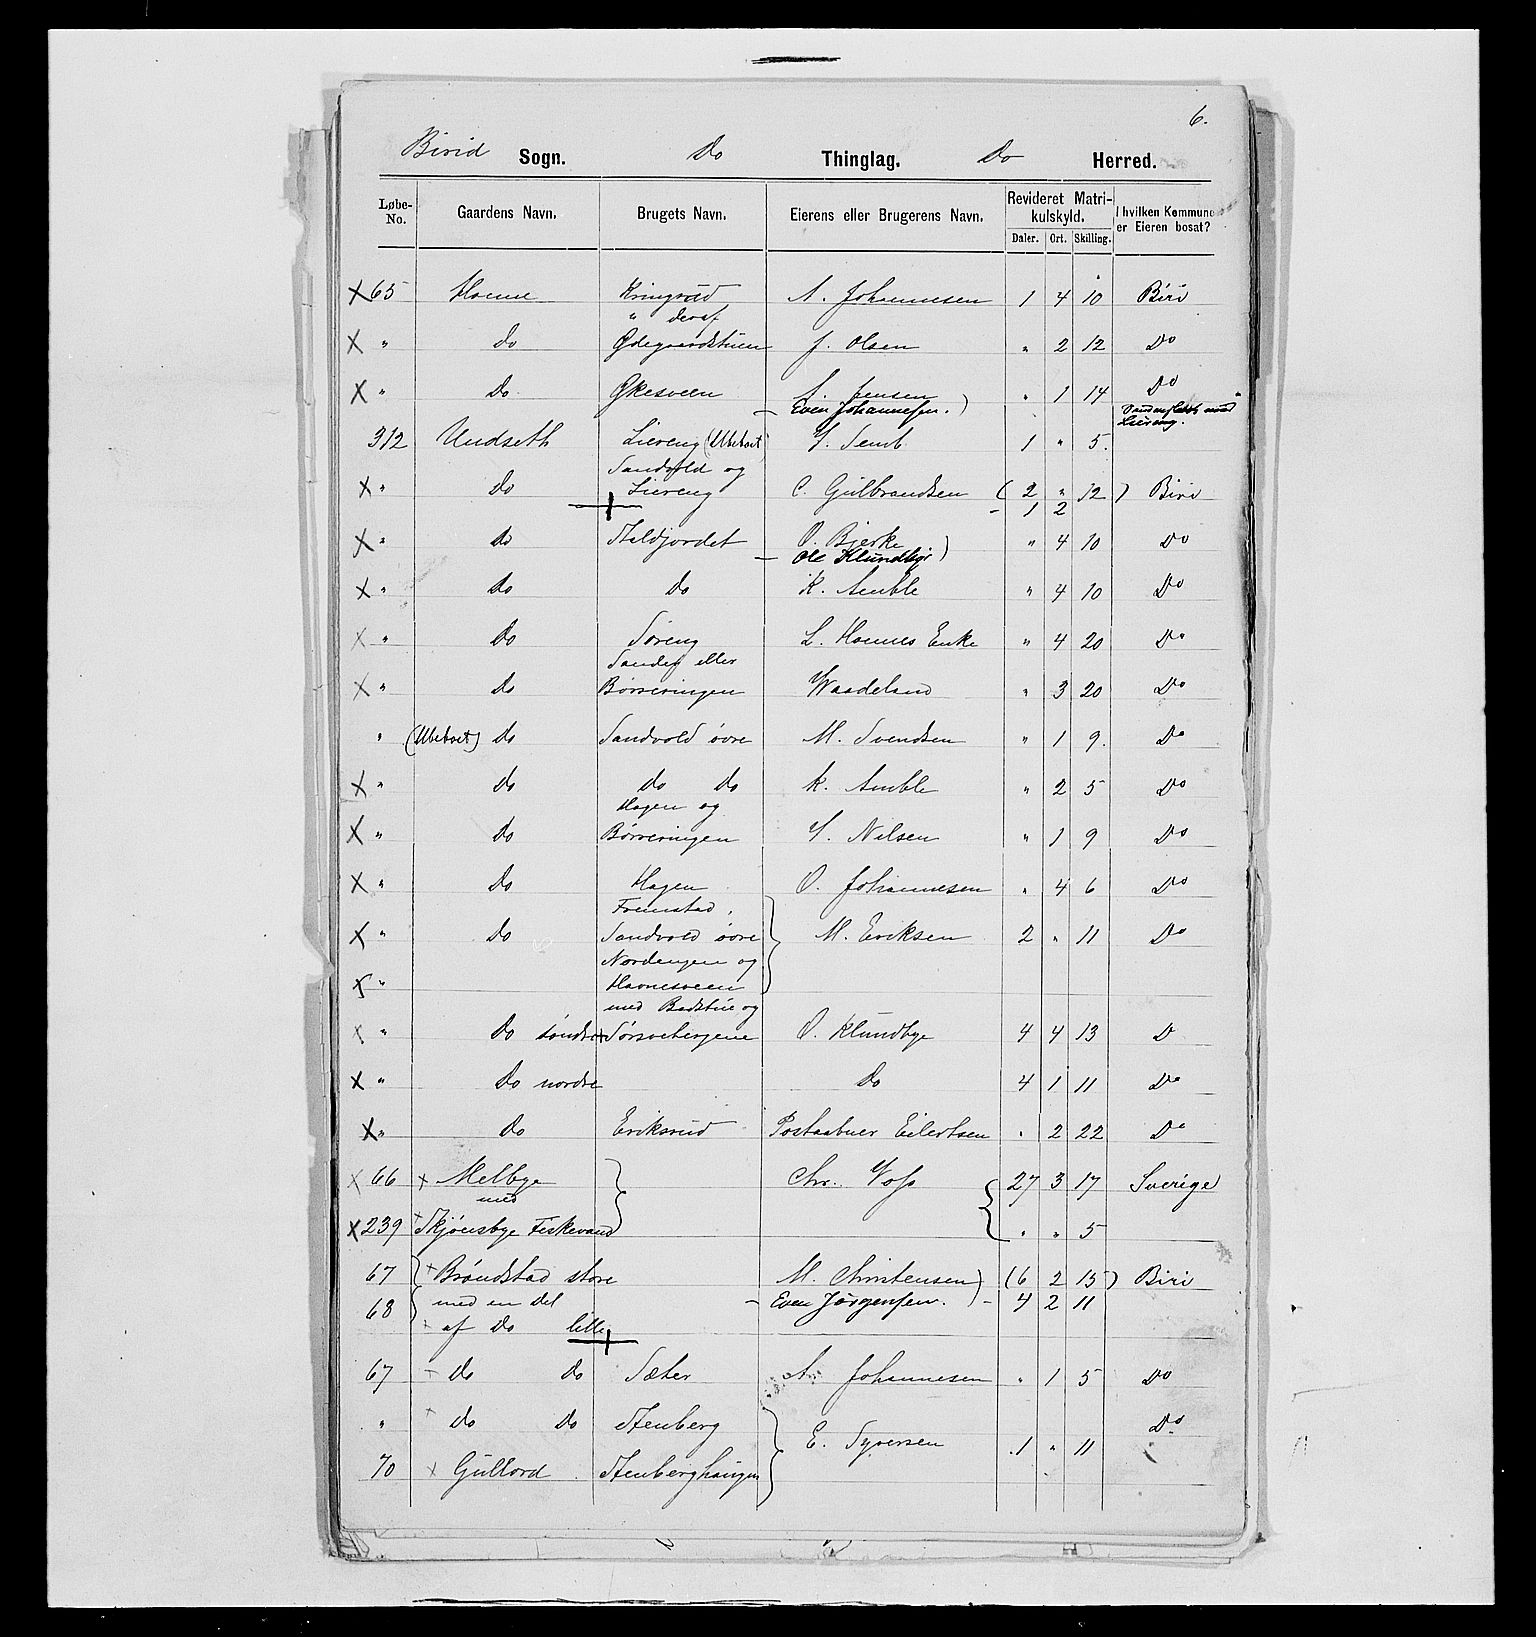 6.
Birid Sogn. Do Thinglag. Do Herred.
Løbe-No. Gaardens Navn. Brugets Navn. Eierens eller Brugerens Navn. Revideret Matrikulskyld. I hvilken Kommune er Eieren bosat?
Daler. Ort. Skilling.
X 65 Honne Kringrud A. Johannesen 1 4 10 Biri
" deraf
X " do Ødegaardstuen J. Olsen " 2 12 Do
X " do Økesveen A. Jensen ) " 1 14 Do
– Even Johannesen.
312 Undseth Liereng (Ubeboet) Y. Semb 1 " 5.
Sandvold og
X " do Liereng C. Gulbrandsen ( 2 " 12 ) Biri
– 1 2
X " do Stuldjordet O. Bjerke ) " 4 10 Do
– Ole Klundby
X " do do K. Amble " 4 10 Do
X " do Søreng L. Honnes Enke " 4 20 Do
Sandeg eller
X " do Børseringen Waadeland " 3 20 Do
" (Ubeboet) do Sandvold øvre M. Svendsen " 1 9. Do
X " do do do K. Amble " 2 5 Do
Hagen og
X " do Børseringen Y. Nilsen " 1 9 Do
X " do Hagen O. Johannesen " 4 6 Do
Fremstad,
X " do Sandvold øvre M. Eriksen 2 " 11 Do
Nordengen og
X " Havnesveen
med Badstue og
X " do søndre + O. Klundbye 4 4 13 D
X " do nordre do 4 1 11 Do
X " do Eriksrud Postaabner Eilertsen " 2 22 Do
X 66 + Melbye Chr. Voss 27 3 17 Sverige
med
X 239 + Skjønsbye Fiskevand " " 5
67 + Brøndstad store M. Christensen ) ( 6 2 15 ) Biri
68 med en del – Even Jørgensen. ) – 4 2 11
+ af do lille
67 + do do Sæter A. Johannesen " 1 5 Do
" + do do Stenberg E. Syversen 1 " 11 Do
70 + Gullord Stenberghaugen